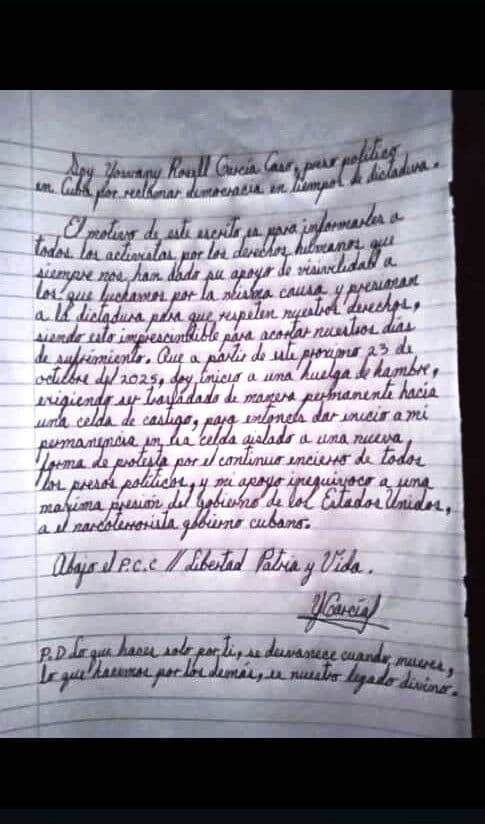 Soy Yosvany Rosell García Caso, preso político
en Cuba por reclamar democracia en tiempos de dictadura.
El motivo de este escrito es para informarles a
todos los activistas por los derechos humanos que
siempre nos han dado su apoyo de visivilidad a
los que luchamos por la misma causa y presionan
a la dictadura para que respeten nuestros derechos,
siendo esto imprescindible para acortar nuestros días
de sufrimiento. Que a partir de este proximo 23 de
octubre del 2025, doy inicio a una huelga de hambre,
exigiendo ser trasladado de manera permanente hacia
una celda de castigo, para entonces dar inicio a mi
permanencia en la celda aislado a una nueva
forma de protesta por el continuo encierro de todos
los presos políticos, y mi apoyo inequívoco a una
maxima presión del gobierno de los Estados Unidos,
a el narcoterrorista gobierno cubano.
Abajo el P.C.C // Libertad Patria y Vida.
YGarcía
P.D Lo que haces solo por ti, se desvanece cuando mueres,
lo que hacemos por los demás, es nuestro legado divino.